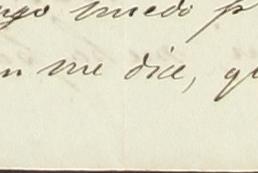 ngo miedo p
n me dice, qu